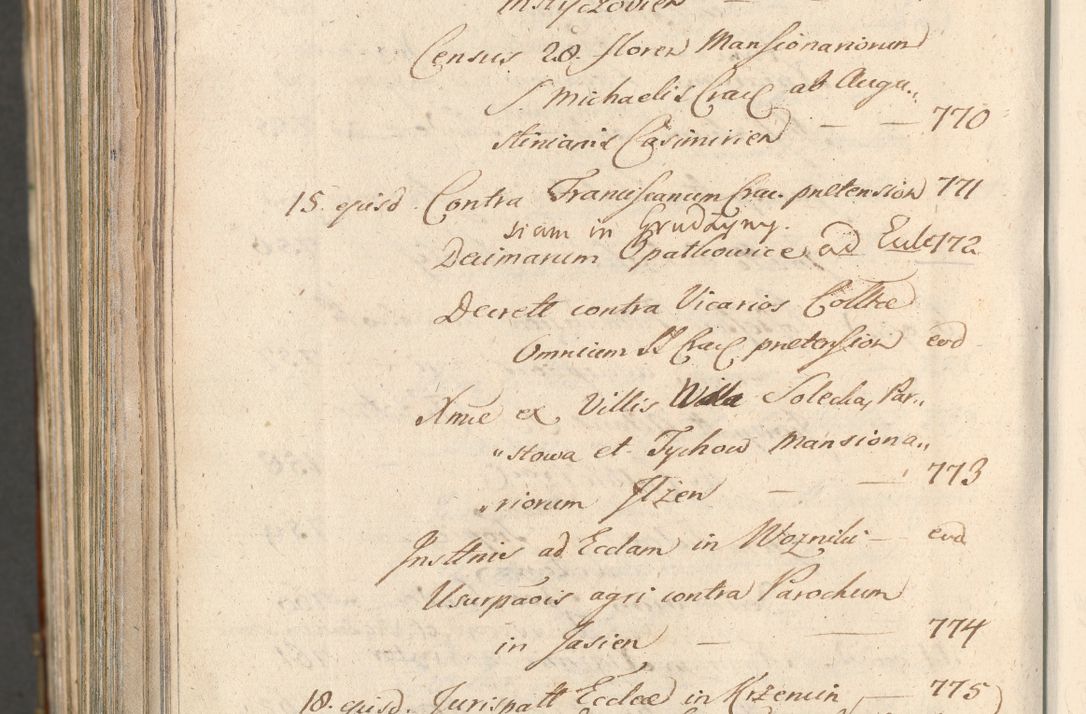 Census 28. floren Mansionariorum
S Michaelis Crac ab Augu„
stinianis Casimirien — — 770
15. ejusd. Contra Franciscanum Crac. prætension 771
siam in Grudzyny.
Decimarum Opatkowice ad Eccle 772
Decrett contra Vicarios Colltæ
Omnium SS Crac prætension eod
Xmæ ex Villis Willa Solecha, Par„
„stowa et Tychow Mansiona„
„riorum Ilzen — — 773
Insttnis ad Ecclam in Woznik — eod
Usurpaois agri contra Parochum
in Jasien — — 774
18. ejusd. Jurispatt Ecclæ in Krzencin — 775